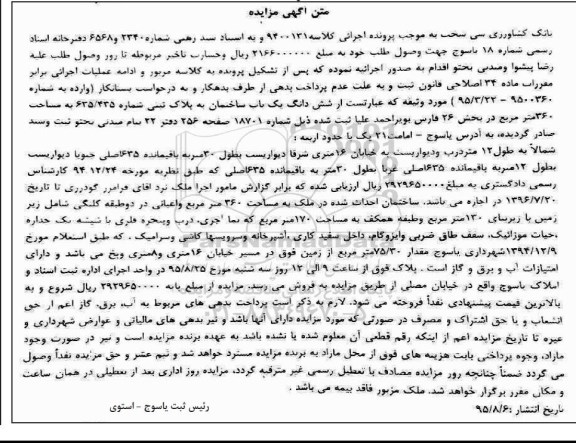 متن آگهی مزایده
بانک کشاورزی سی سخت به موجب پرونده اجرائی کلاسه ۹۴۰۰۱۳۱ و به استناد سند رهنی شماره ۲۳۴۰ و ۶۵۶۸ دفترخانه اسناد
رسمی شماره ۱۸ یاسوج جهت وصول طلب خود به مبلغ ۲۱۶۶۰۰۰۰۰۰ ریال وخسارت تاخیر مربوطه تا روز وصول طلب علیه
رضا پیشوا وصدنی بحتو اقدام به صدور اجرائیه نموده که پس از تشکیل پرونده به کلاسه مزبور و ادامه عملیات اجرائی برابر
مقررات ماده ۳۴ اصلاحی قانون ثبت و به علت عدم پرداخت بدهی از طرف بدهکار و به درخواست بستانکار (وارده به شماره
۹۵۰۰۳۶۰ - ۹۵/۳/۲۲) مورد وثیقه که عبارتست از شش دانگ یک باب ساختمان به پلاک ثبتی شماره ۶۳۵/۴۳۵ به مساحت
۳۶۰متر مربع در بخش ۲۶ فارس بویراحمد علیا ثبت شده ذیل شماره ۱۸۷۰۱ صفحه ۲۵۶ دفتر ۲۲ بنام صدنی بحتو ثبت وسند
صادر گردیده، به آدرس یاسوج - امامت ۳۱ یک با حدود اربعه :
شمالاً به طول ۱۲ متردرب ودیواریست به خیابان ۱۶متری شرقا دیواریست بطول ۳۰متربه باقیمانده ۶۳۵اصلی جنوبا دیواریست
بطول ۱۲متربه باقیمانده ۶۳۵اصلی غربا بطول ۳۰متر به باقیمانده ۶۳۵اصلی که طبق نظریه مورخه ۹۴/۱۲/۲۴ کارشناس
رسمی دادگستری به مبلغ ۲۹۲۹۶۵۰۰۰۰ ریال ارزیابی شده که برابر گزارش مامور اجرا ملک نزد اقای فرامرز گودرزی تا تاریخ
۱۳۹۶/۷/۲۰ در اجاره می باشد. ساختمان احداث شده در ملک به مساحت ۳۶۰ متر مربع واعیانی در دوطبقه گلنگی شامل زیر
زمین با زیربنای ۱۳۰متر مربع وطبقه همکف به مساحت ۱۷۰متر مربع که نما آجری، درب وپنجره فلزی با شیشه یک جداره
،حیاط موزائیک، سقف طاق ضربی وایزوگام، داخل سفید کاری ،آشپزخانه وسرویسها کاشی وسرامیک . که طبق استعلام مورخ
۱۳۹۴/۱۲/۹شهرداری یاسوج مقدار ۷۵/۳۰متر مربع از زمین فوق در مسیر خیابان ۱۶متری و ۸متری وپخ می باشد و دارای
امتیازات آب و برق و گاز است . پلاک فوق از ساعت ۹ الی ۱۲ روز سه شنبه مورخ ۹۵/۸/۲۵ در واحد اجرای اداره ثبت اسناد و
املاک یاسوج واقع در خیابان مصلی از طریق مزایده به فروش می رسد. مزایده از مبلغ پایه ۲۹۲۹۶۵۰۰۰۰ ریال شروع و به
بالاترین قیمت پیشنهادی نقداً فروخته می شود. لازم به ذکر است پرداخت بدهی های مربوطه به آب، برق، گاز اعم از حق
انشعاب و یا حق اشتراک و مصرف در صورتی که مورد مزایده دارای آنها باشد و نیز بدهی های مالیاتی و عوارض شهرداری و
غیره تا تاریخ مزایده اعم از اینکه رقم قطعی آن معلوم شده یا نشده باشد به عهده برنده مزایده است و نیز در صورت وجود
مازاد، وجوه پرداختی بابت هزینه های فوق از محل مازاد به برنده مزایده مسترد خواهد شد و نیم عشر و حق مزایده نقداً وصول
می گردد ضمناً چنانچه روز مزایده مصادف با تعطیل رسمی غیر مترقبه گردد، مزایده روز اداری بعد از تعطیلی در همان ساعت
و مکان مقرر برگزار خواهد شد. ملک مزبور فاقد بیمه می باشد .
تاریخ انتشار : ۹۵/۸/۶ رئیس ثبت یاسوج - استوی